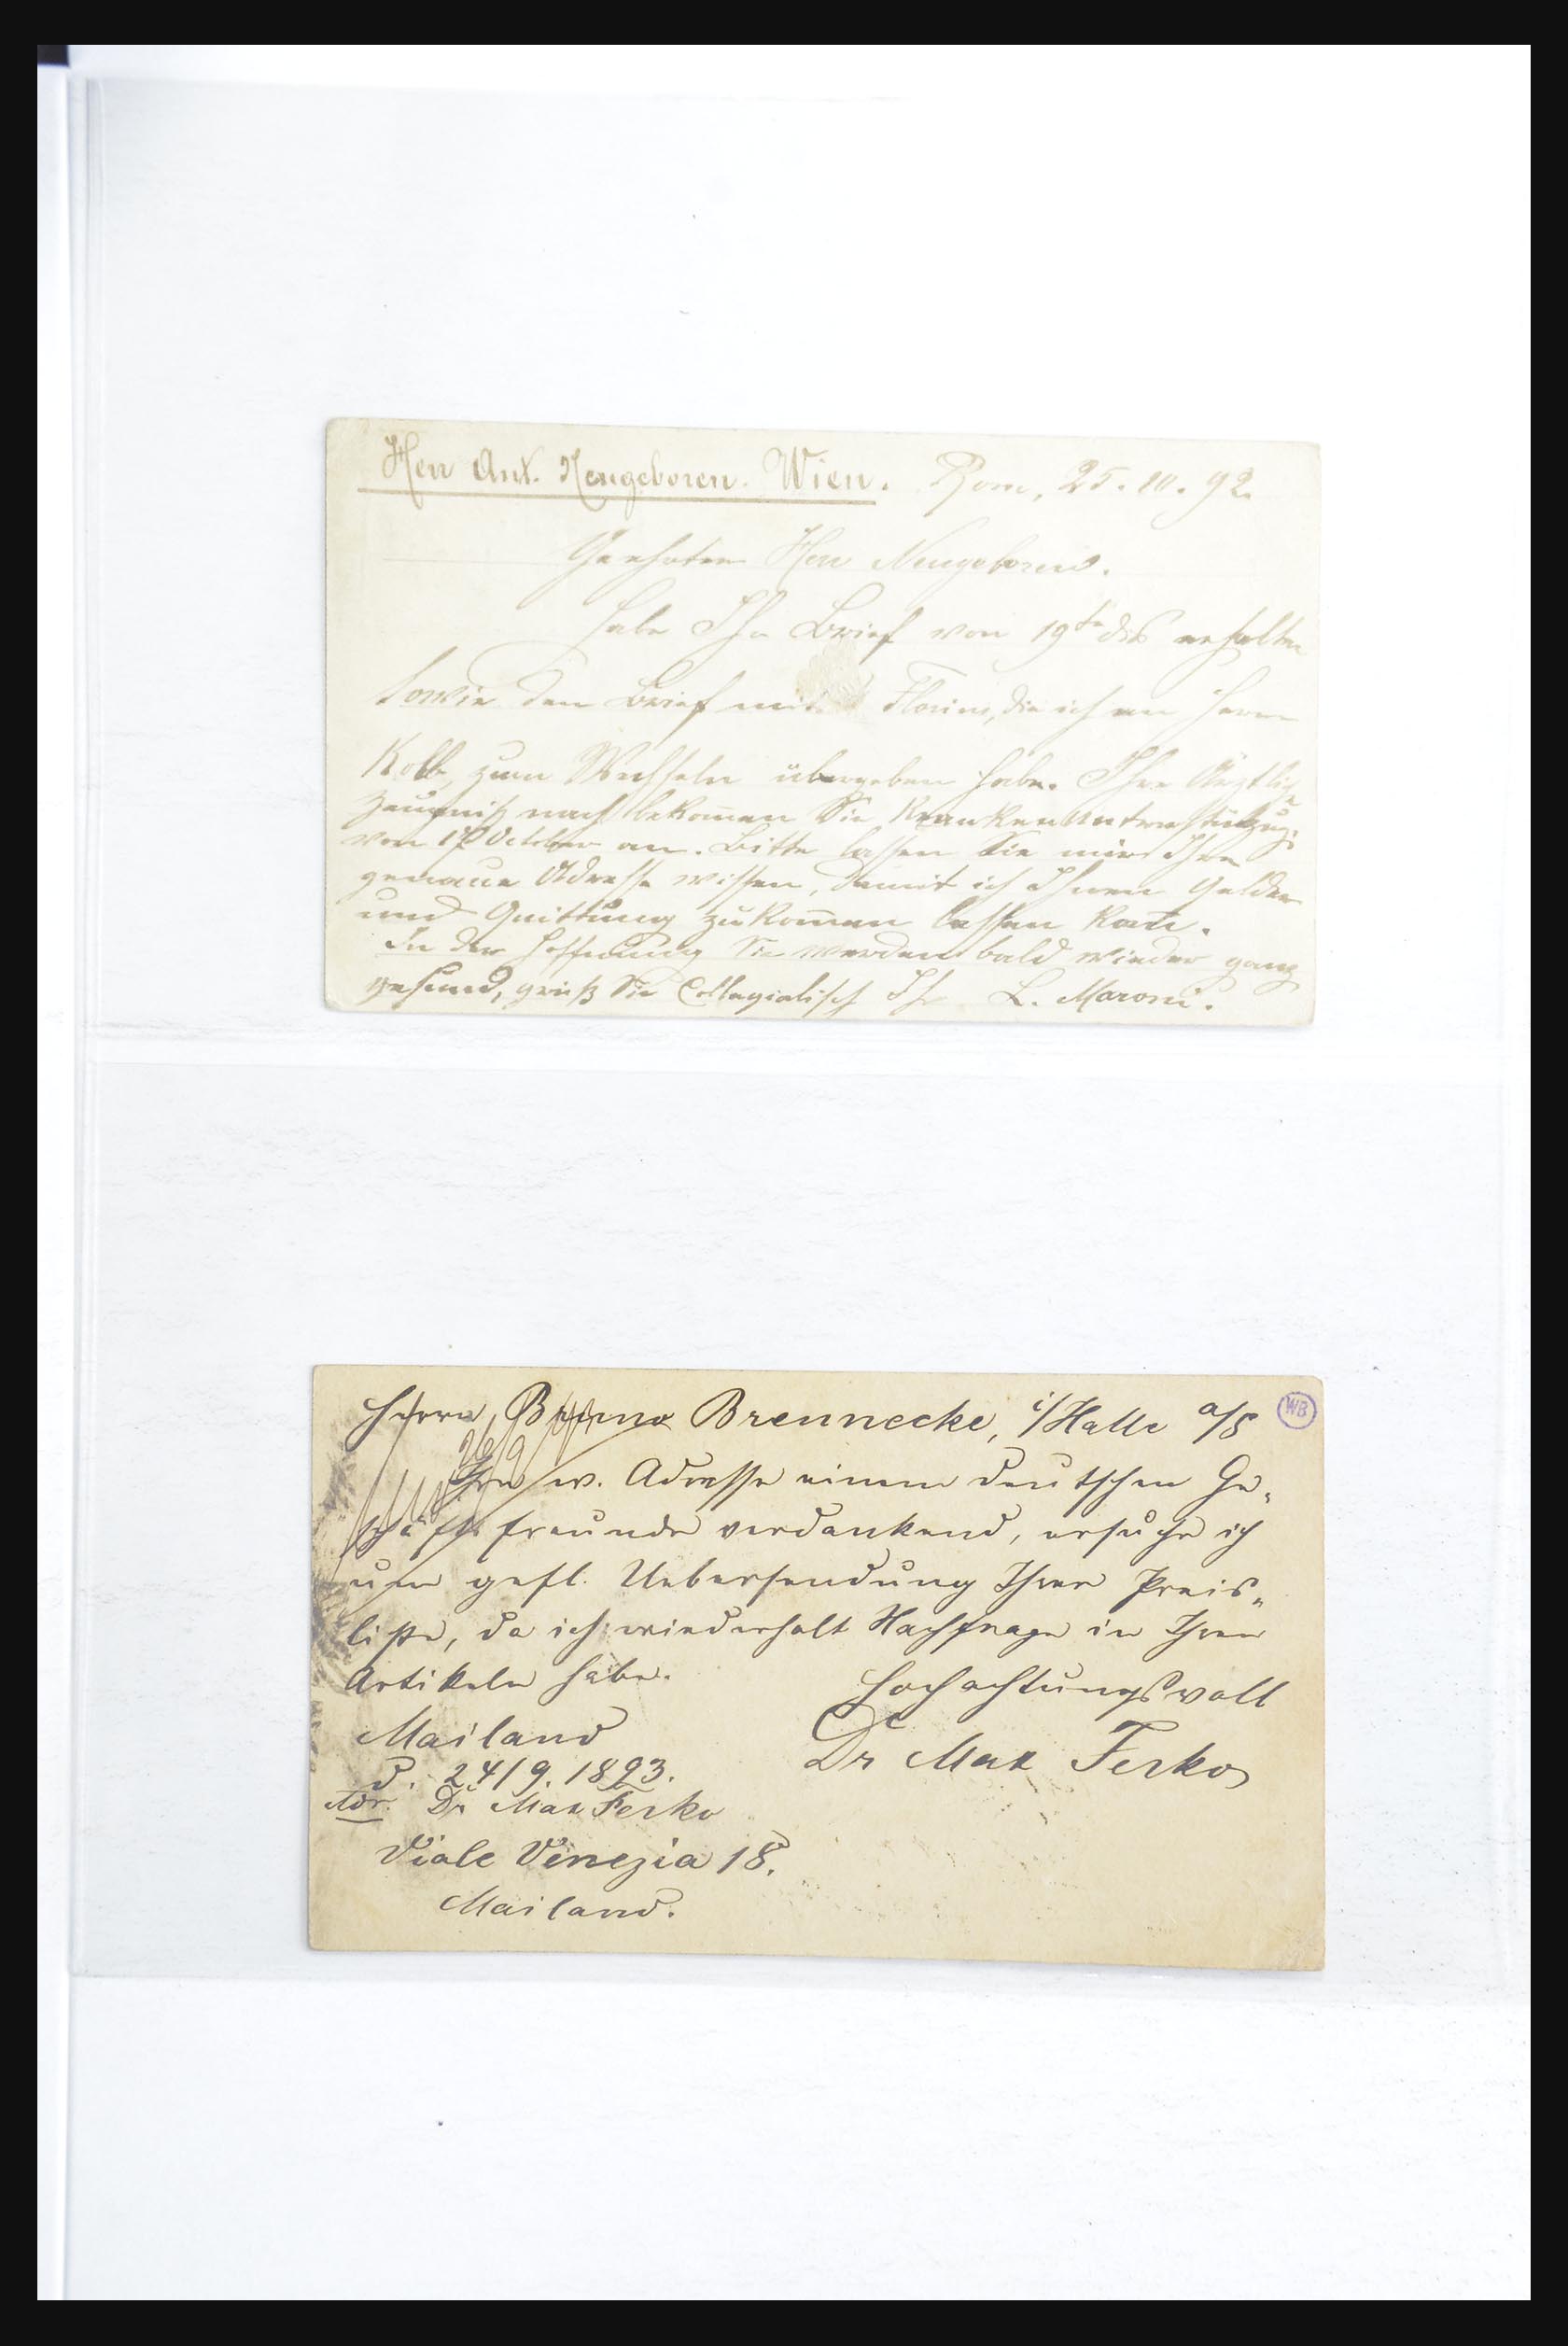 Herrn Ant. Neugeboren. Wien. Rom, 25.10.92.
Geehrter Herr Neugeboren.
Habe Ihr Brief von 19ten dss erhalten
sowie den Brief mit Florins, die ich an Herrn
Kolb zum Wechseln übergeben habe. Ihre Ärztlich
Zeugniß nach bekom̄en Sie Kranken Unterstützung
von October an. Bitte lassen Sie mir Ihre
genaue Adresse wissen, damit ich Ihnen Gelder
und Quittung zukom̄en lassen kan̄.
In der Hoffnung Sie werden bald wieder ganz
gesund, grüß Sie Collegialisch Ihr L. Maroni.
Herrn Bruno Brennecke, i/Halle a/S
WB
26/9
Ihre w. Adresse einem deutschen Ge„
schäftsfreunde verdankend, ersuche ich
um gefl. Uebersendung Ihrer Preis„
liste, da ich wiederholt Nachfrage in Ihren
Artikeln habe.
Hochachtungsvoll
Mailand
Dr Max Ferko
d. 24/9. 1893.
Adr. Dr Max Ferko
Viale Venezia 18.
Mailand.